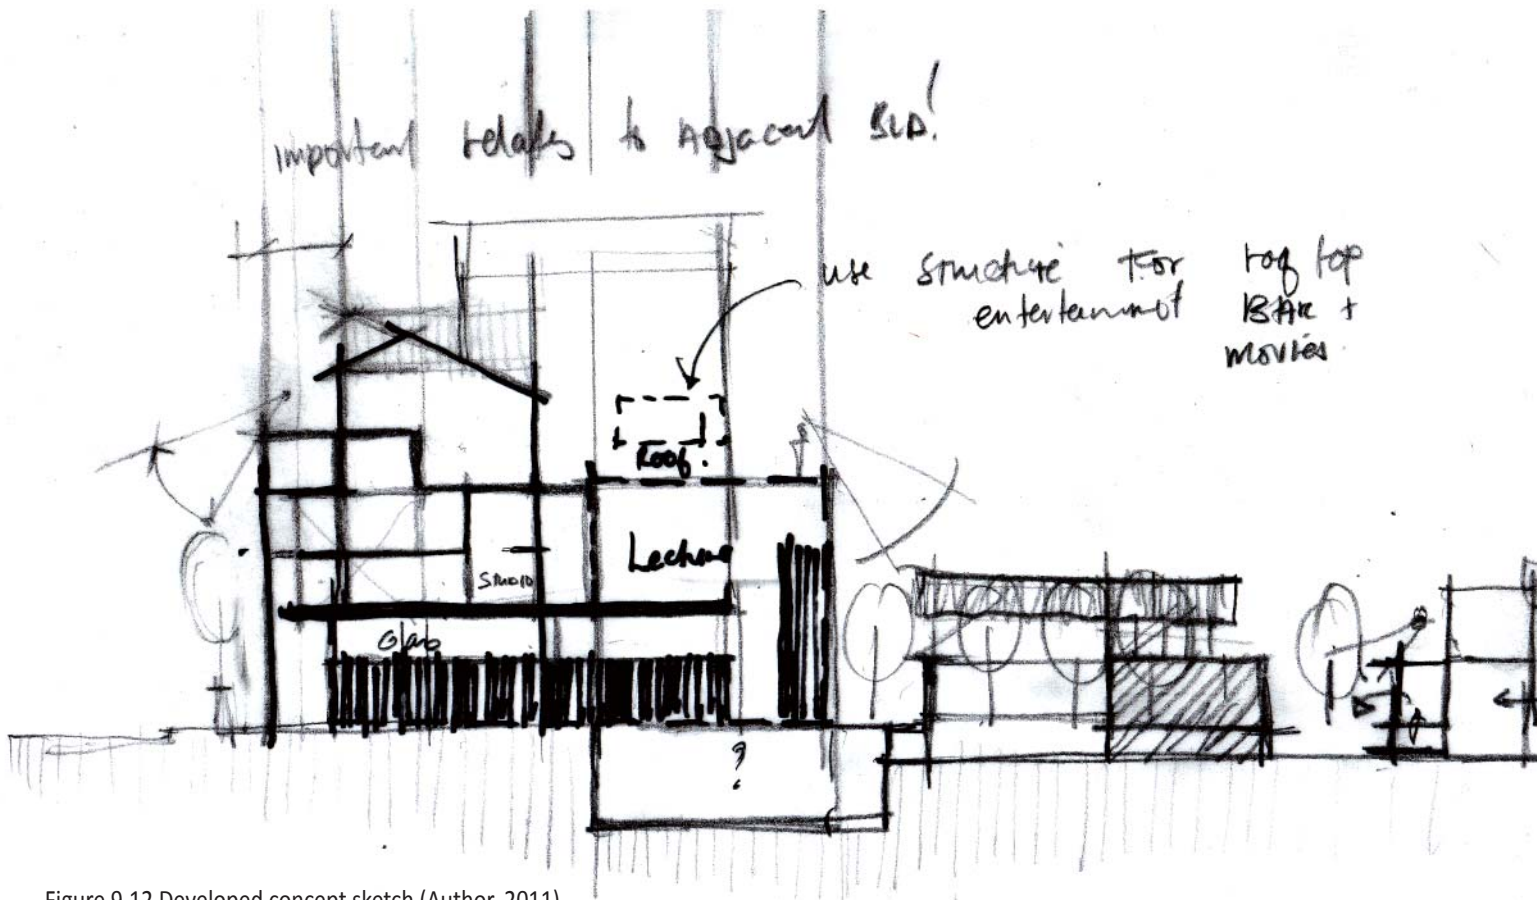 important relates to Adjacent BLD!
use structure For roof top
entertainment BAR +
movies
Roof.
Lecture
STUDIO
Glass
?
Figure 9.12 Developed concept sketch (Author, 2011)